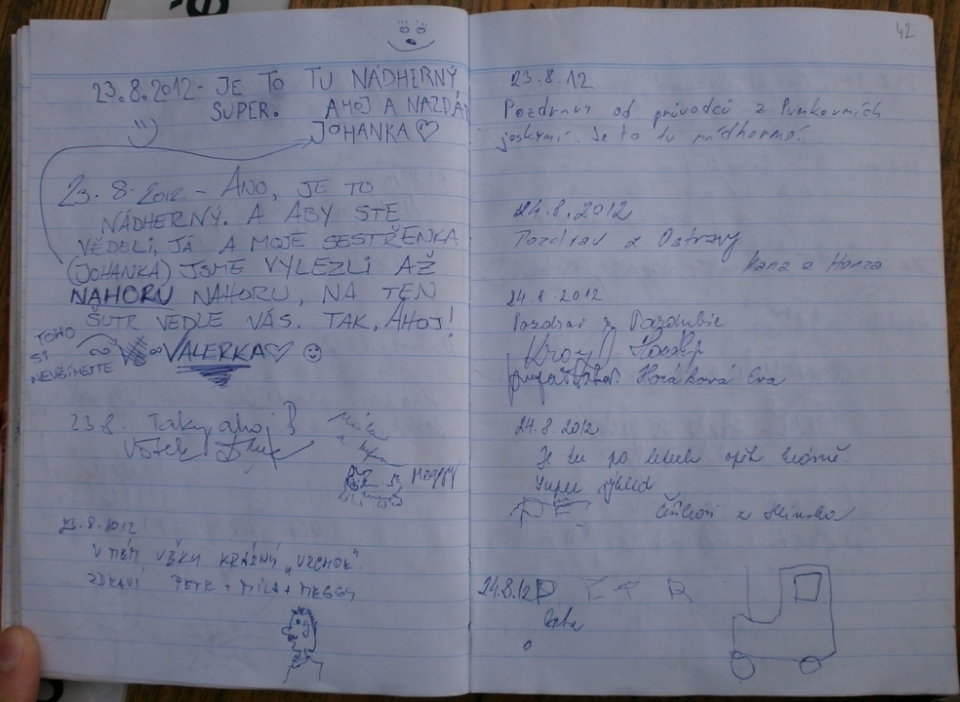 23.8.2012 - JE TO TU NÁDHERNÝ
SUPER. AHOJ A NAZDÁ
JOHANKA
23.8.2012 - ÁNO, JE TO
NÁDHERNÝ. A ABY STE
VĚDELI, JÁ A MOJE SESTŘENKA
(JOHANKA) JSME VYLEZLI AŽ
NAHORU NAHORU, NA TEN
ŠUTR VEDLE VÁS. TAK, AHOJ!
TOHO
SI
NEVŠÍMEJTE
VALERKA
23.8. Taky ahoj
Vojtek
MEGGY
23.8.2012
V MÉM VĚKU KRÁSNÝ „VRCHOL".
ZDRAVÍ PETR + MÍLA + MEGGY
42
23.8.12
Pozdravy od průvodců z Punkevních
jeskyní. Je to tu nádherné.
24.8.2012
Pozdrav z Ostravy
Hana a Honza
24.8.2012
Pozdrav z Pardubic
Horáková Eva
24.8 2012
Je tu po letech opět krásně
Super výhled
z Hlinska
24.8.12